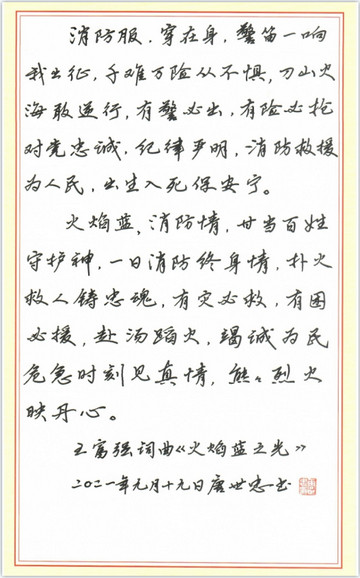 消防服.穿在身,警笛一响
我出征,千难万险从不惧,刀山火
海敢逆行,有警必出,有险必抢
对党忠诚,纪律严明,消防救援
为人民,出生入死保安宁。
火焰蓝、消防情,甘当百姓
守护神,一日消防终身情,扑火
救人铸忠魂,有灾必救,有困
必援,赴汤蹈火,竭诚为民
危急时刻见真情,熊々烈火
映丹心。
王富强词曲《火焰蓝之光》
二〇二一年元月十九日唐世忠书